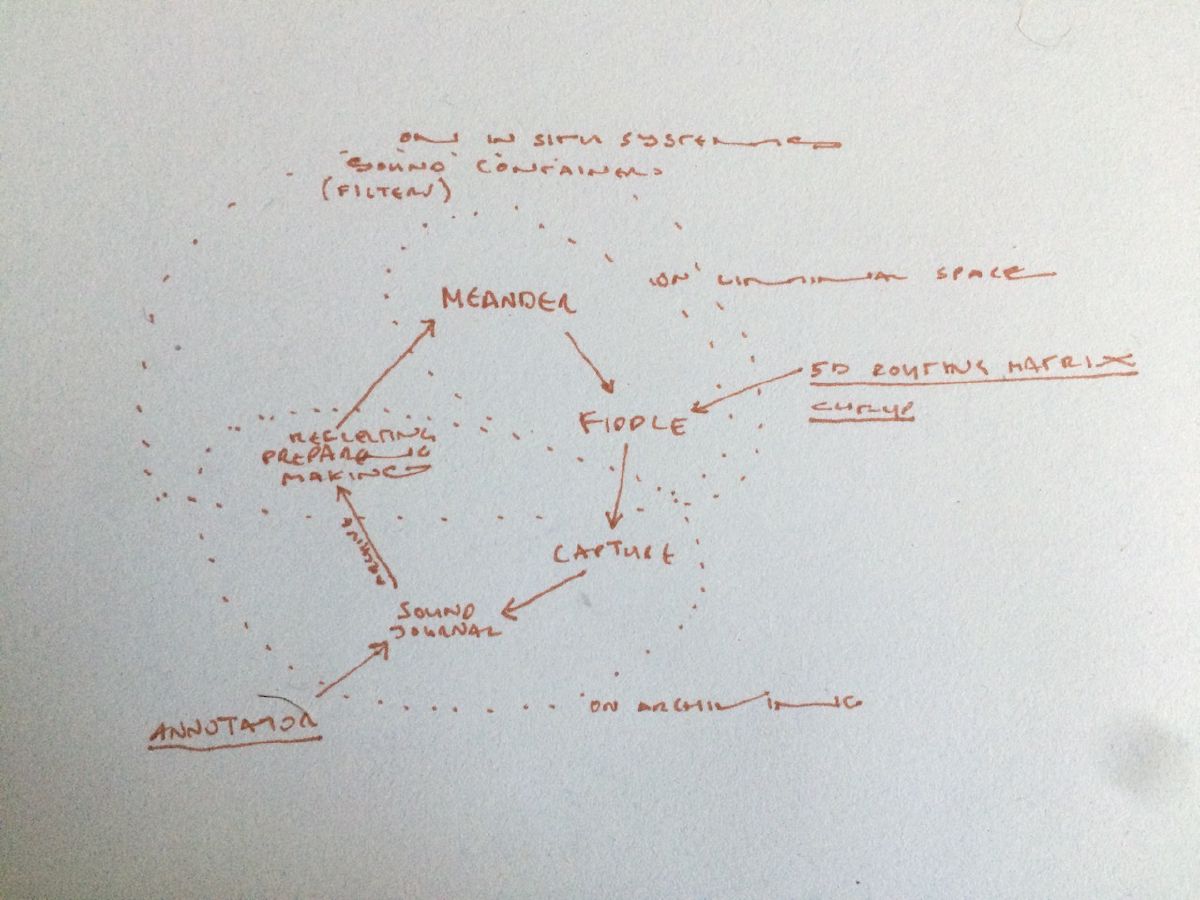 ON IN SITU SYSTEMICS
"SOUND" CONTAINERS
(FILTERS)
ON LIMINAL SPACE
MEANDER
5D ROUTING MATRIX
FIDDLE
REFLECTING
PREPARING
MAKING
CAPTURE
SOUND
JOURNAL
ON ARCHIVING
ANNOTATOR